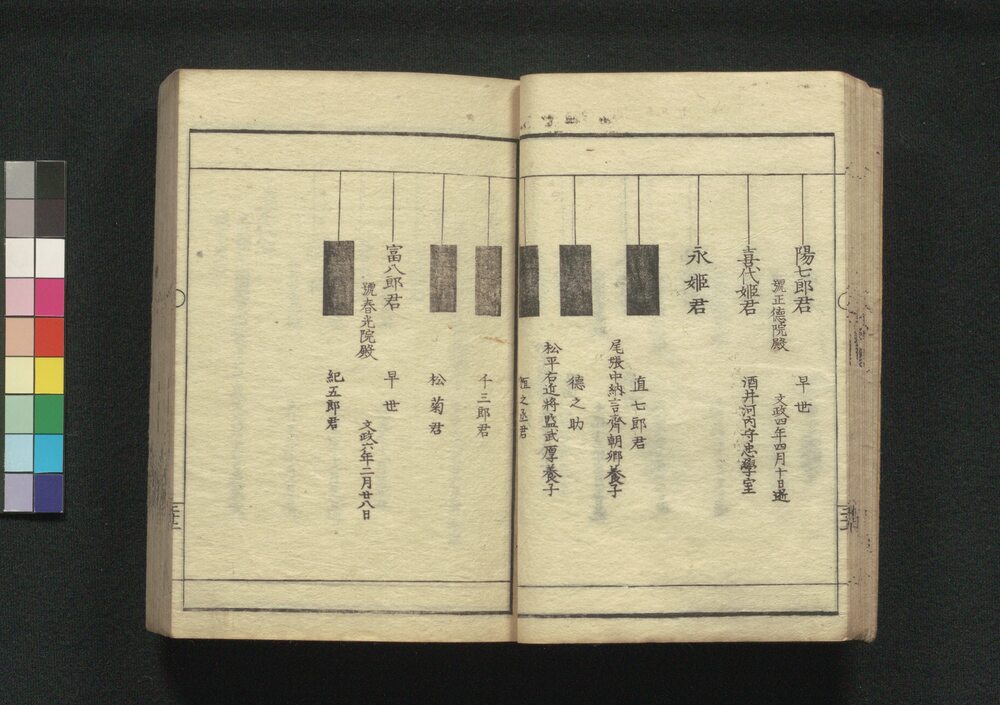 陽七郎君
號正德院殿
早世
文政四年四月十日逝
喜代姬君
酒井河內守忠學室
永姬君
直七郎君
尾張中納言齊朝卿養子
德之助
松平右近將監武厚養子
恒之丞君
千三郎君
松菊君
富八郎君
號春光院殿
早世
文政六年二月廿八日
紀五郎君